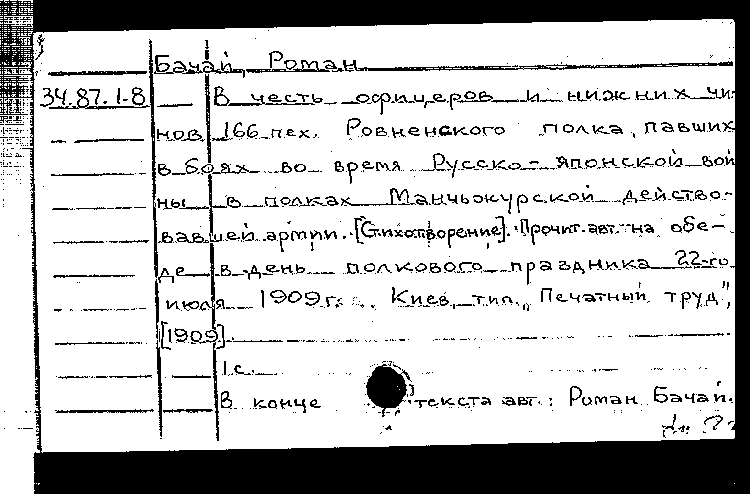 Бачай, Роман
34.87.1-8 В честь офицеров и нижних чи-
нов 166 пех. Ровненского полка, павших
в боях во время Русско-японской вой
ны в полках Манчьжурской действо-
вавшей армии. [Стихотворение]. Прочит. авт. на обе-
де в день полкового праздника 22-го
июля 1909 г. Киев, тип. „Печатный труд",
[1909].
1 с.
В конце текста авт.: Роман Бачай.